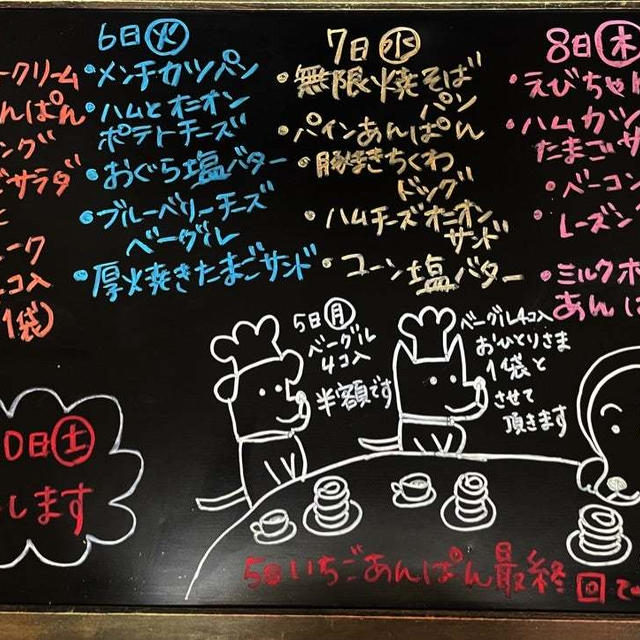 ークリーム
んぱん
ング
ごサラダ
ーク
4コ入
1袋)
6日㊋
・メンチカツパン
・ハムとオニオン
ポテトチーズ
・おぐら塩バター
・ブルーベリーチーズ
ベーグル
・厚焼きたまごサンド
7日㊌
・無限焼そば
パン
・パインあんぱん
・豚まきちくわ
ドッグ
・ハムチーズオニオン
サンド
・コーン塩バター
8日㊍
・えびちゃ
・ハムカツ
たまごサ
・ベーコン
・レーズン
・ミルクホ
あんぱ
0日㊏
します
5日㊊
ベーグル
4コ入
半額です
ベーグル4コ入
おひとりさま
1袋と
させて
頂きます
5日いちごあんぱん最終回で